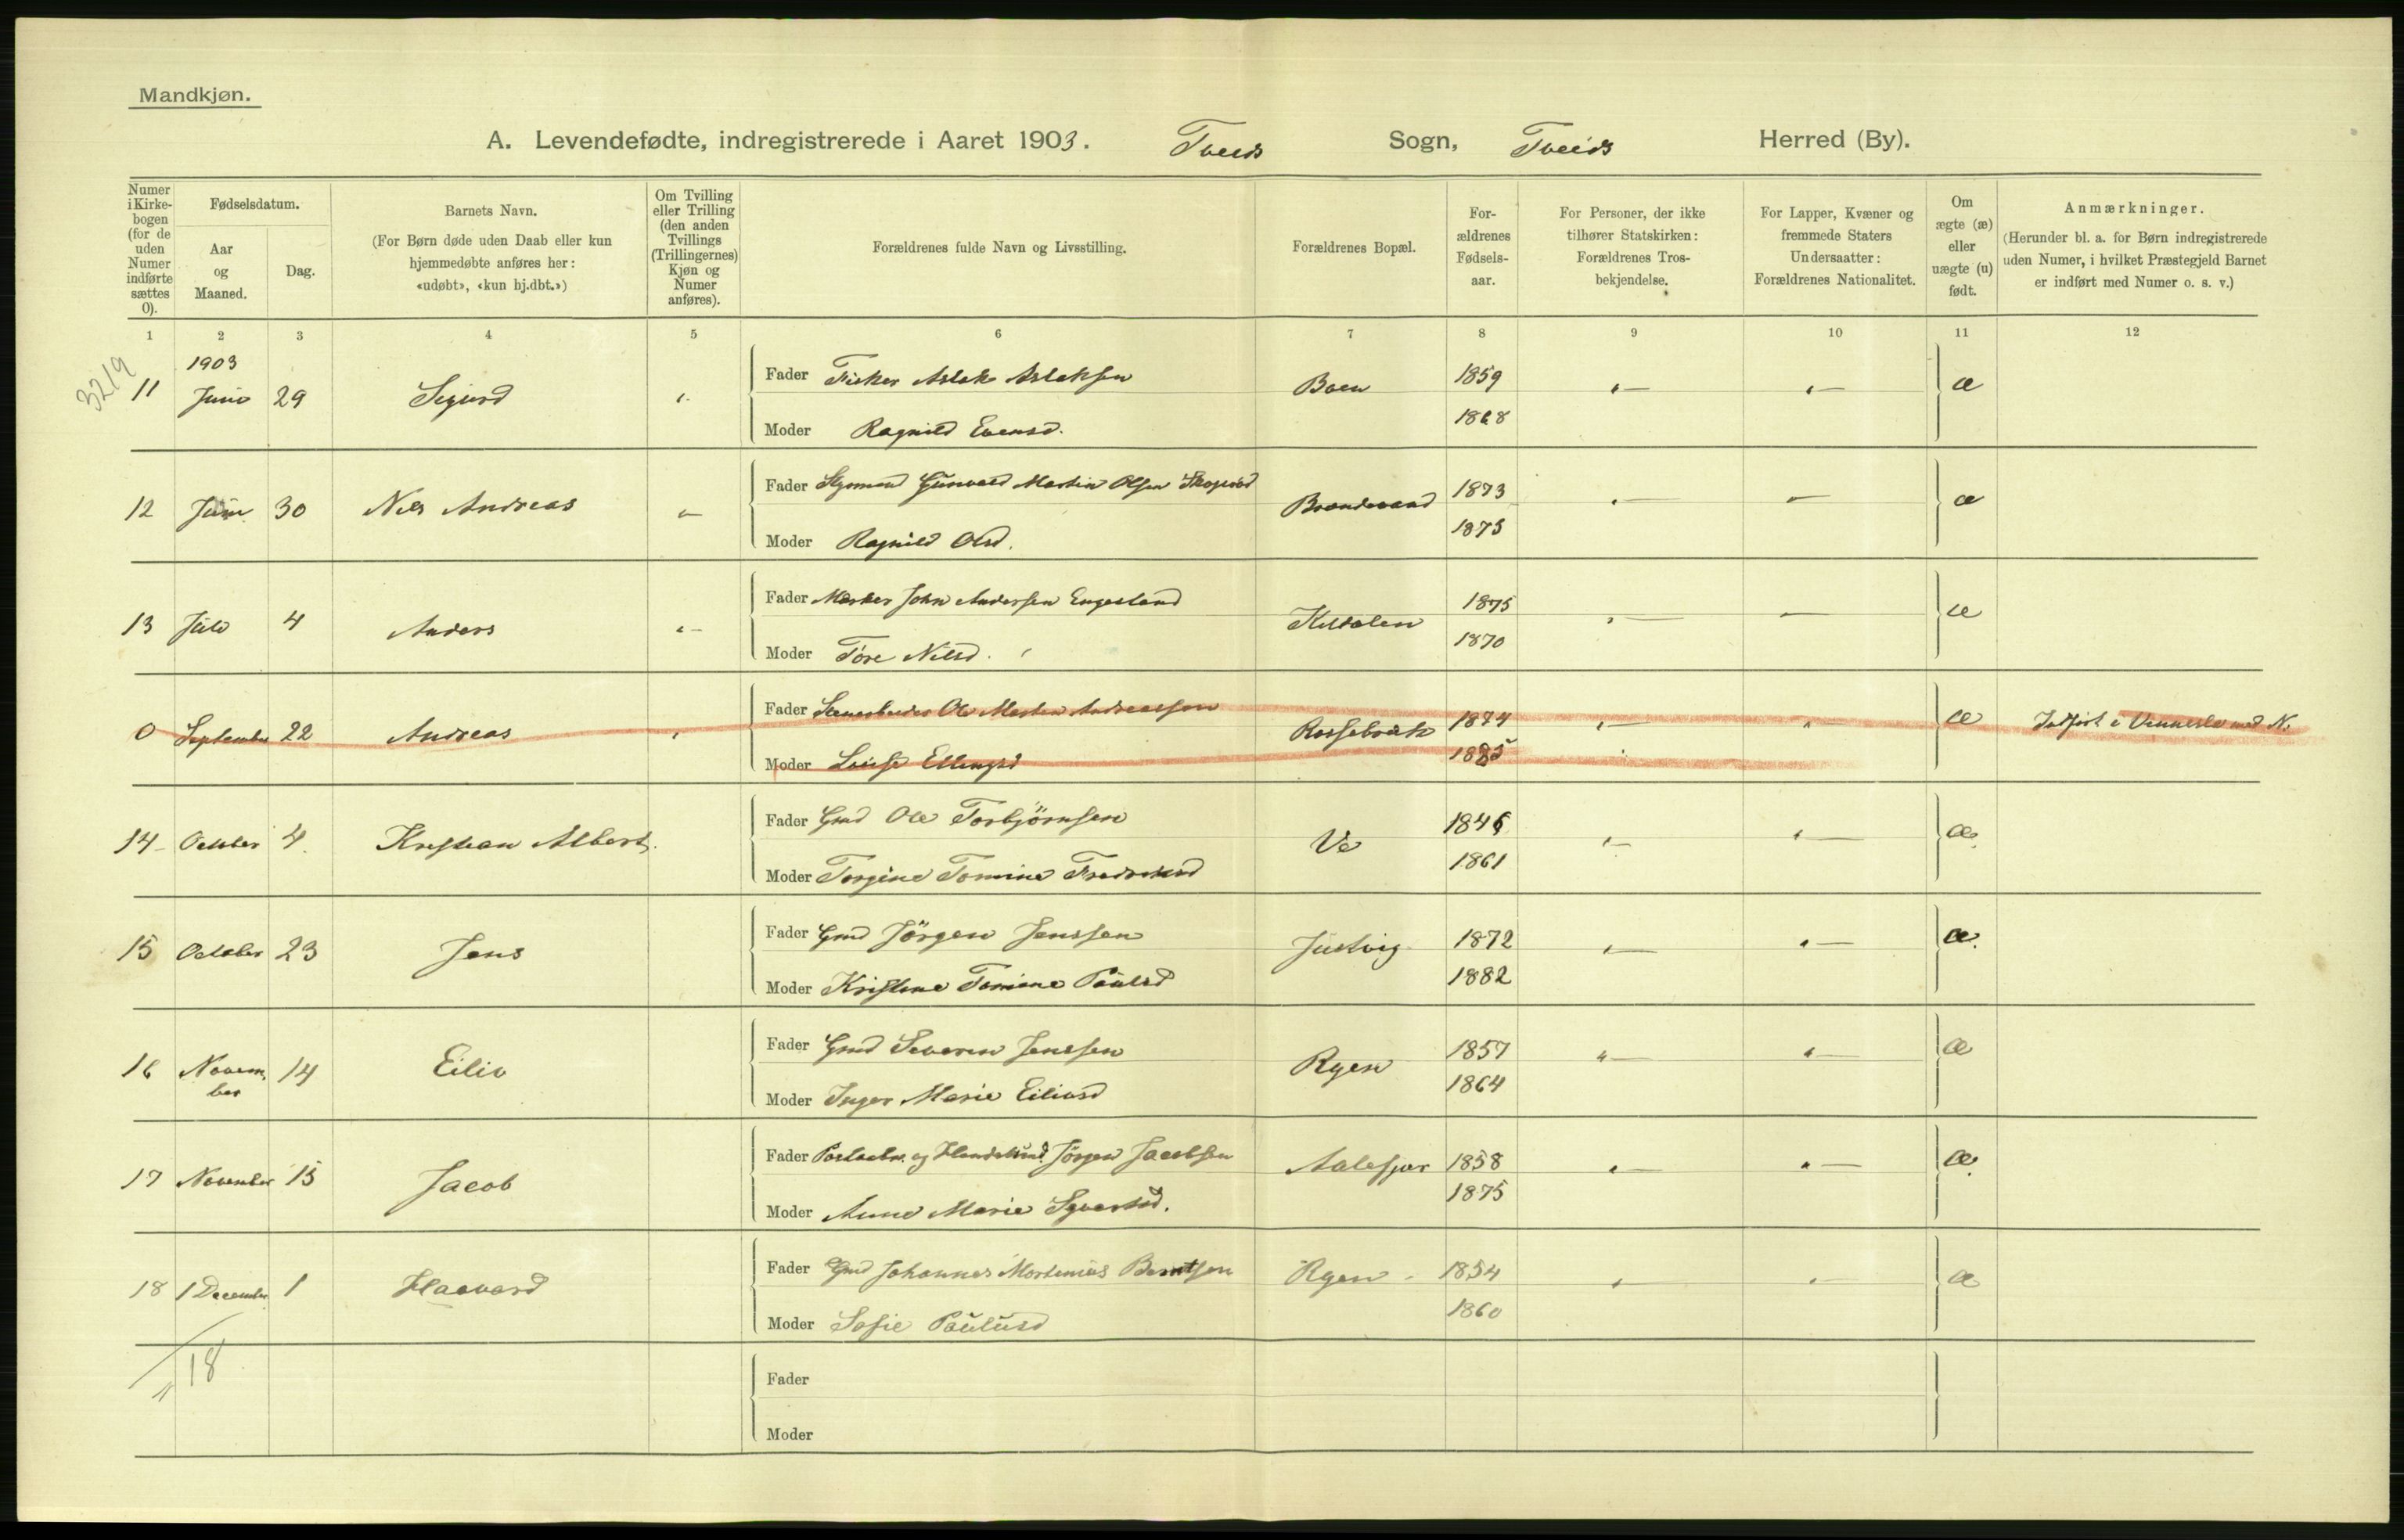 Mandkjøn.
A. Levendefødte, indregistrerede i Aaret 1903. Tveids Sogn, Tveids Herred (By).
Numer i Kirkebogen (for de uden Numer indførte sættes 0).
Fødselsdatum.
Aar og Maaned.
Dag.
Barnets Navn.
(For Børn døde uden Daab eller kun hjemmedøbte anføres her: «udøbt», «kun hj.dbt.»)
Om Tvilling eller Trilling (den anden Tvillings (Trillingernes) Kjøn og Numer anføres).
Forældrenes fulde Navn og Livsstilling.
Forældrenes Bopæl.
Forældrenes Fødselsaar.
For Personer, der ikke tilhører Statskirken: Forældrenes Trosbekjendelse.
For Lapper, Kvæner og fremmede Staters Undersaatter: Forældrenes Nationalitet.
Om ægte (æ) eller uægte (u) født.
Anmærkninger.
(Herunder bl. a. for Børn indregistrerede uden Numer, i hvilket Præstegjeld Barnet er indført med Numer o. s. v.)
1 2 3 4 5 6 7 8 9 10 11 12
3219
1903
11 Juni 29 Sigurd Fader Fisker Aslak Aslaksen Boen 1859 æ
Moder Ragnild Evensd. 1868
12 Juni 30 Nils Andreas Fader Gunvald Martin Olsen Brandevand 1873 æ
Moder Ragnild Olsd. 1875
13 Juli 4 Anders Fader John Andersen Engesland 1875 æ
Moder Tore Nilsd. 1870
0 September 22 Andreas Fader Ole Martin Andreassen 1874 æ Indført i Vennesla med N.
Moder Louise Ellingsd 1885
14 October 4 Kristian Albert. Fader Gmd Ole Torbjörnsen Ve 1846 æ
Moder Torgine Tomine Fredriksd 1861
15 October 23 Jens Fader Gmd Jörgen Jenssen Justvig 1872 æ.
Moder Kristine Tomine Paulsd 1882
16 November 14 Eiliv Fader Gmd Severin Jenssen Ryen 1857 æ
Moder Inger Marie Eilivsd 1864
17 November 15 Jacob Fader og Jörgen Jacobsen Aalefjær 1858 æ.
Moder Anne Marie Syvertsd. 1875
18 1 December 1 Haavard Fader Gmd Johannes Mortinius Berntsen Ryen 1854 æ
Moder Sofie Paulusd 1860
18
Fader
Moder